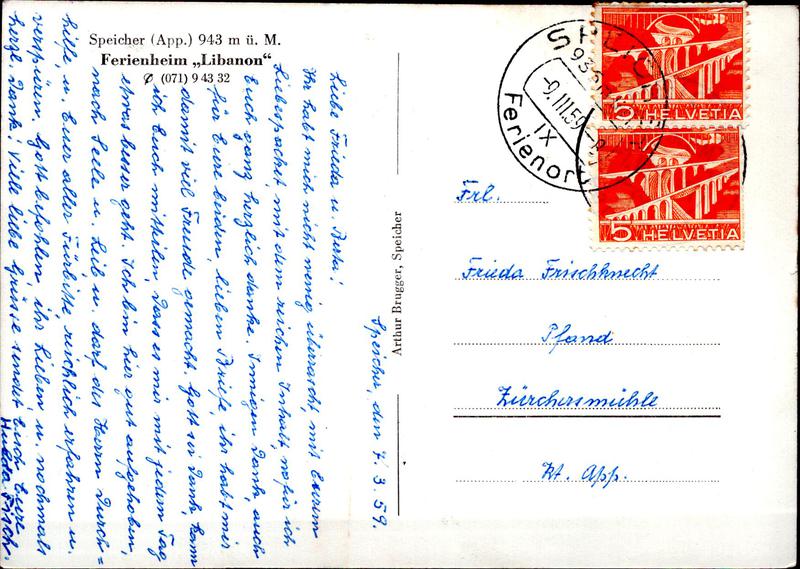 Speicher (App.) 943 m ü. M.
Ferienheim „Libanon"
✆ (071) 9 43 32
Speicher, den 7. 3. 59.
Liebe Frieda u. Berta!
Ihr habt mich nicht wenig überrascht, mit Eurem
Liebespacket mit dem reichen Inhalt, wofür ich
Euch ganz herzlich danke. Innigen Dank, auch
für Eure beiden, lieben Briefe, ihr habt mir
damit viel Freude gemacht. Gott sei Dank kann
ich Euch mitteilen, dass es mir mit jedem Tag
etwas besser geht. Ich bin hier gut aufgehoben,
nach Seele u. Leib u. darf des Herrn Durch=
hilfe u. Euer aller Fürbitte reichlich erfahren u.
verspüren. Gott befohlen, ihr Lieben, u. nochmals
herzl. Dank! Viele liebe Grüsse sendet Euch Eure
Hulda Fisch.
Arthur Brugger, Speicher
SPEIC
-9.III.59
IX
Ferienor
5 HELVETIA
5 HELVETIA
Frl.
Frieda Frischknecht
Pfand
Zürchersmühle
Kt. App.